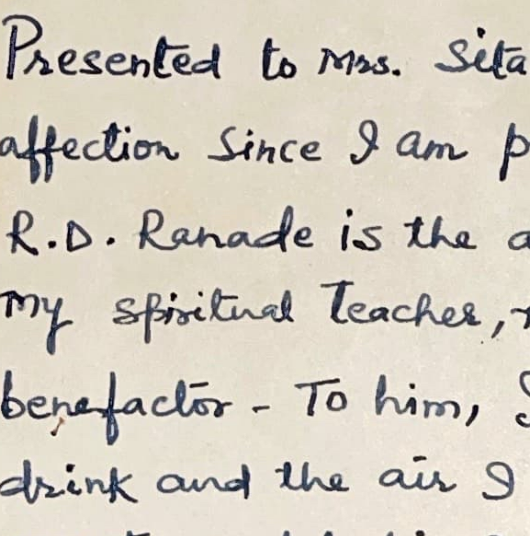 Presented to Mrs. Sita
affection Since I am p
R.D. Ranade is the a
my spiritual Teacher,
benefactor - To him, I
drink and the air I